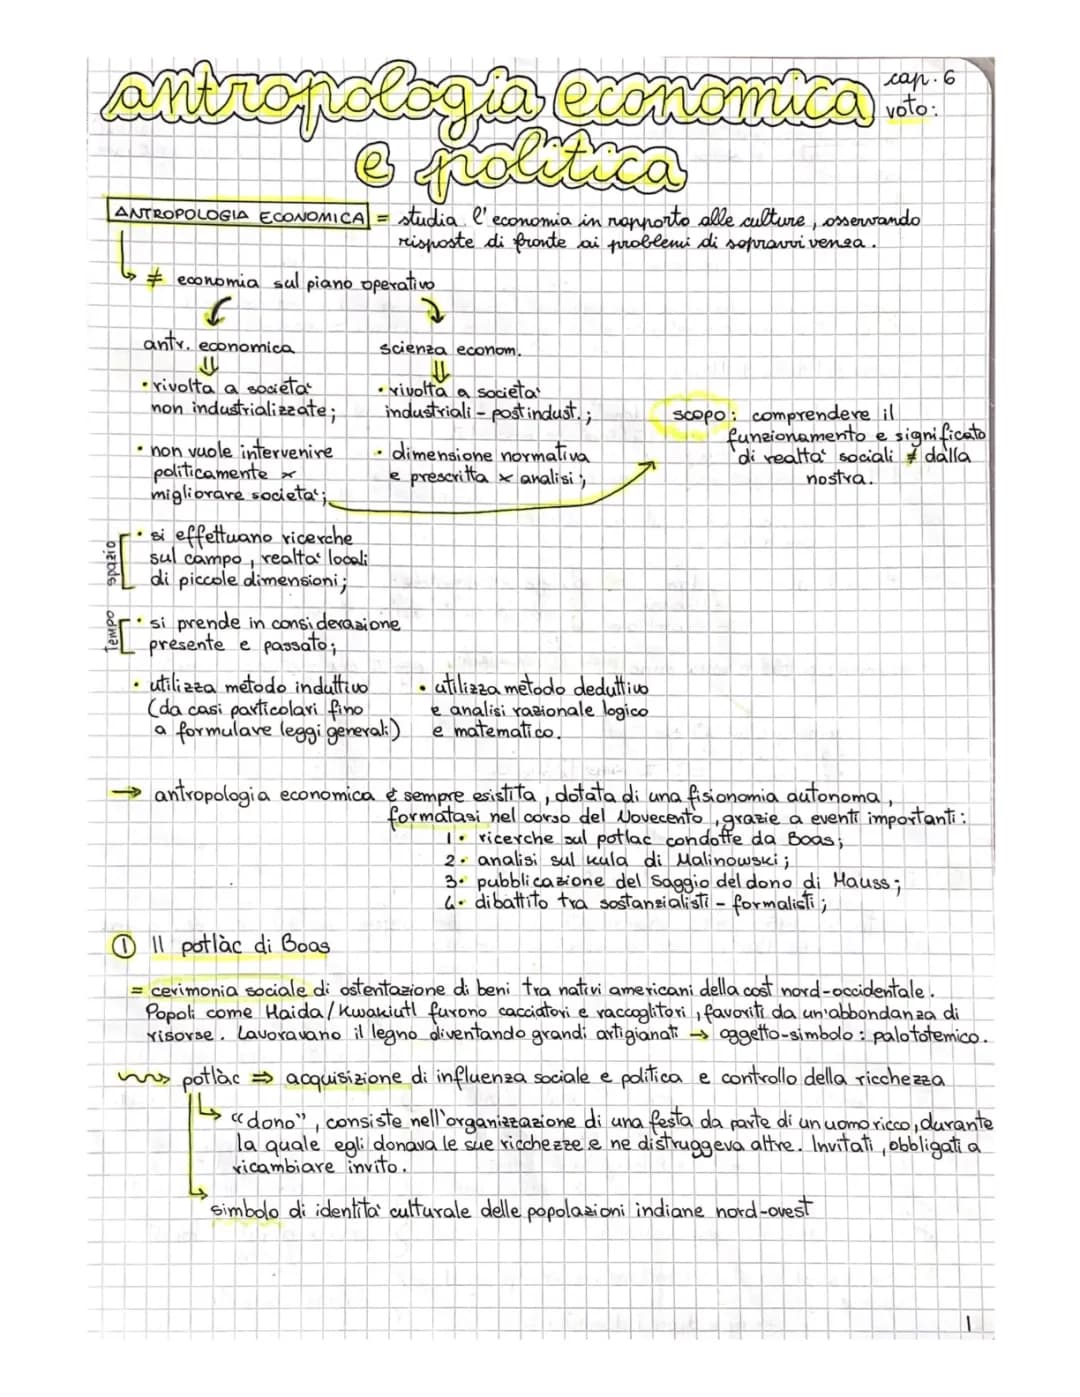 antropologia economica
cap. 6
voto:
e politica
ANTROPOLOGIA ECONOMICA = studia l'economia in rapporto alle culture, osservando
risposte di fronte ai problemi di sopravvivenza.
≠ economia sul piano operativo
antr. economica
⇓
• rivolta a societa'
non industrializzate;
• non vuole intervenire
politicamente x
migliorare societa';
spazio
• si effettuano ricerche
sul campo, realta' locali
di piccole dimensioni;
tempo
• si prende in considerazione
presente e passato;
• utilizza metodo induttivo
(da casi particolari fino
a formulare leggi generali)
scienza econom.
⇓
• rivolta a societa'
industriali - postindust.;
• dimensione normativa
e prescritta x analisi;
• utilizza metodo deduttivo
e analisi razionale logico
e matematico.
scopo: comprendere il
funzionamento e significato
di realta' sociali ≠ dalla
nostra.
→ antropologia economica è sempre esistita, dotata di una fisionomia autonoma,
formatasi nel corso del Novecento, grazie a eventi importanti:
1• ricerche sul potlac condotte da Boas;
2• analisi sul kula di Malinowski;
3• pubblicazione del Saggio del dono di Mauss;
4• dibattito tra sostanzialisti - formalisti;
① Il potlàc di Boas
= cerimonia sociale di ostentazione di beni tra nativi americani della cost nord-occidentale.
Popoli come Haida/Kwakiutl furono cacciatori e raccoglitori, favoriti da un'abbondanza di
risorse. Lavoravano il legno diventando grandi artigianati → oggetto-simbolo: palo totemico.
potlàc ⇒ acquisizione di influenza sociale e politica e controllo della ricchezza
↳ "dono", consiste nell'organizzazione di una festa da parte di un uomo ricco, durante
la quale egli donava le sue ricchezze e ne distruggeva altre. Invitati, obbligati a
ricambiare invito.
↳ simbolo di identita' culturale delle popolazioni indiane nord-ovest
1